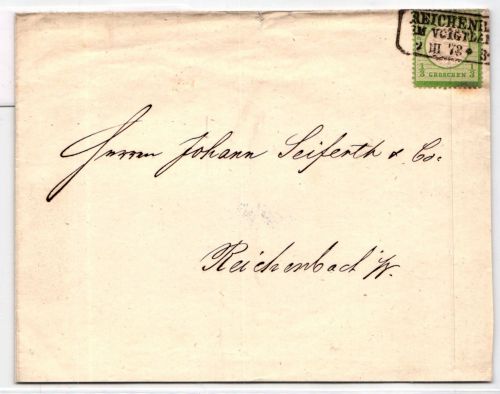 REICHENB
IM VOIGTLA
7 III 73 * 3-
⅓ GROSCHEN ⅓
Herren Johann Seiferth & Co.
Reichenbach i/V.